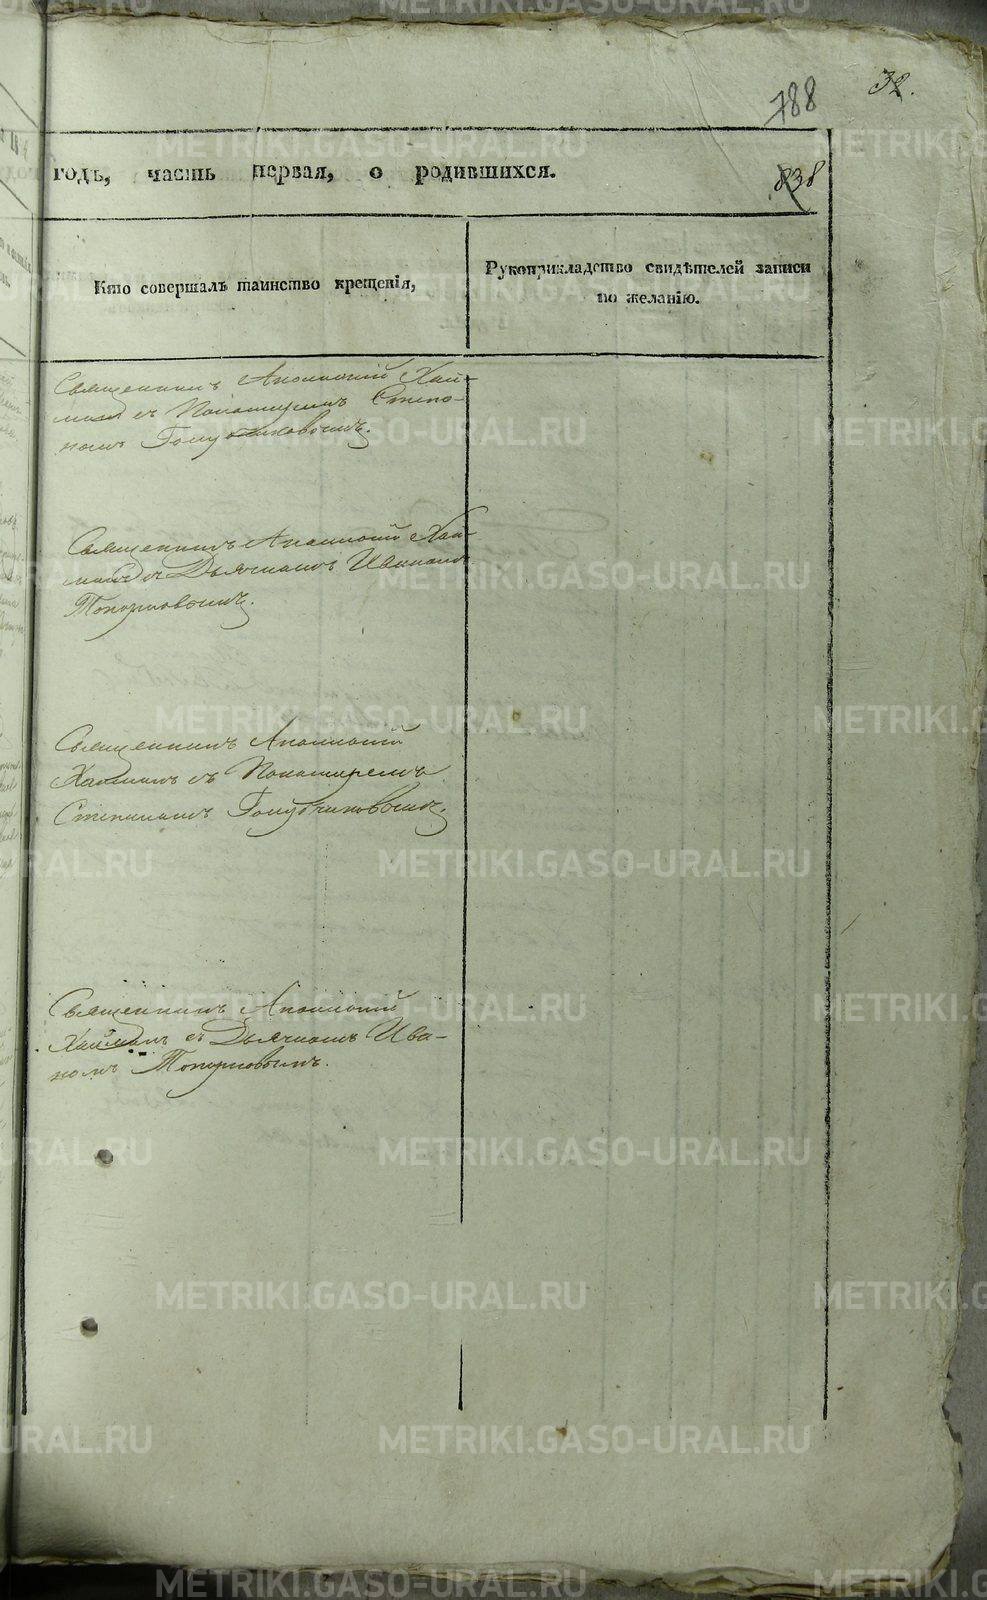 32.
788
838
годъ, часть первая, о родившихся.
Кто совершалъ таинство крещенія,
Рукоприкладство свидѣтелей записи
по желанію.
Священникъ Аполлоній Хай-
съ Пономаремъ Степа-
номъ Голубчиковымъ.
Священникъ Аполлоній
съ Дьячкомъ Иваномъ
Топорковымъ.
Священникъ Аполлоній
съ Пономаремъ
Степаномъ Голубчиковымъ.
Священникъ Аполлоній
съ Дьячкомъ Ива-
номъ Топорковымъ.
METRIKI.GASO-URAL.RU